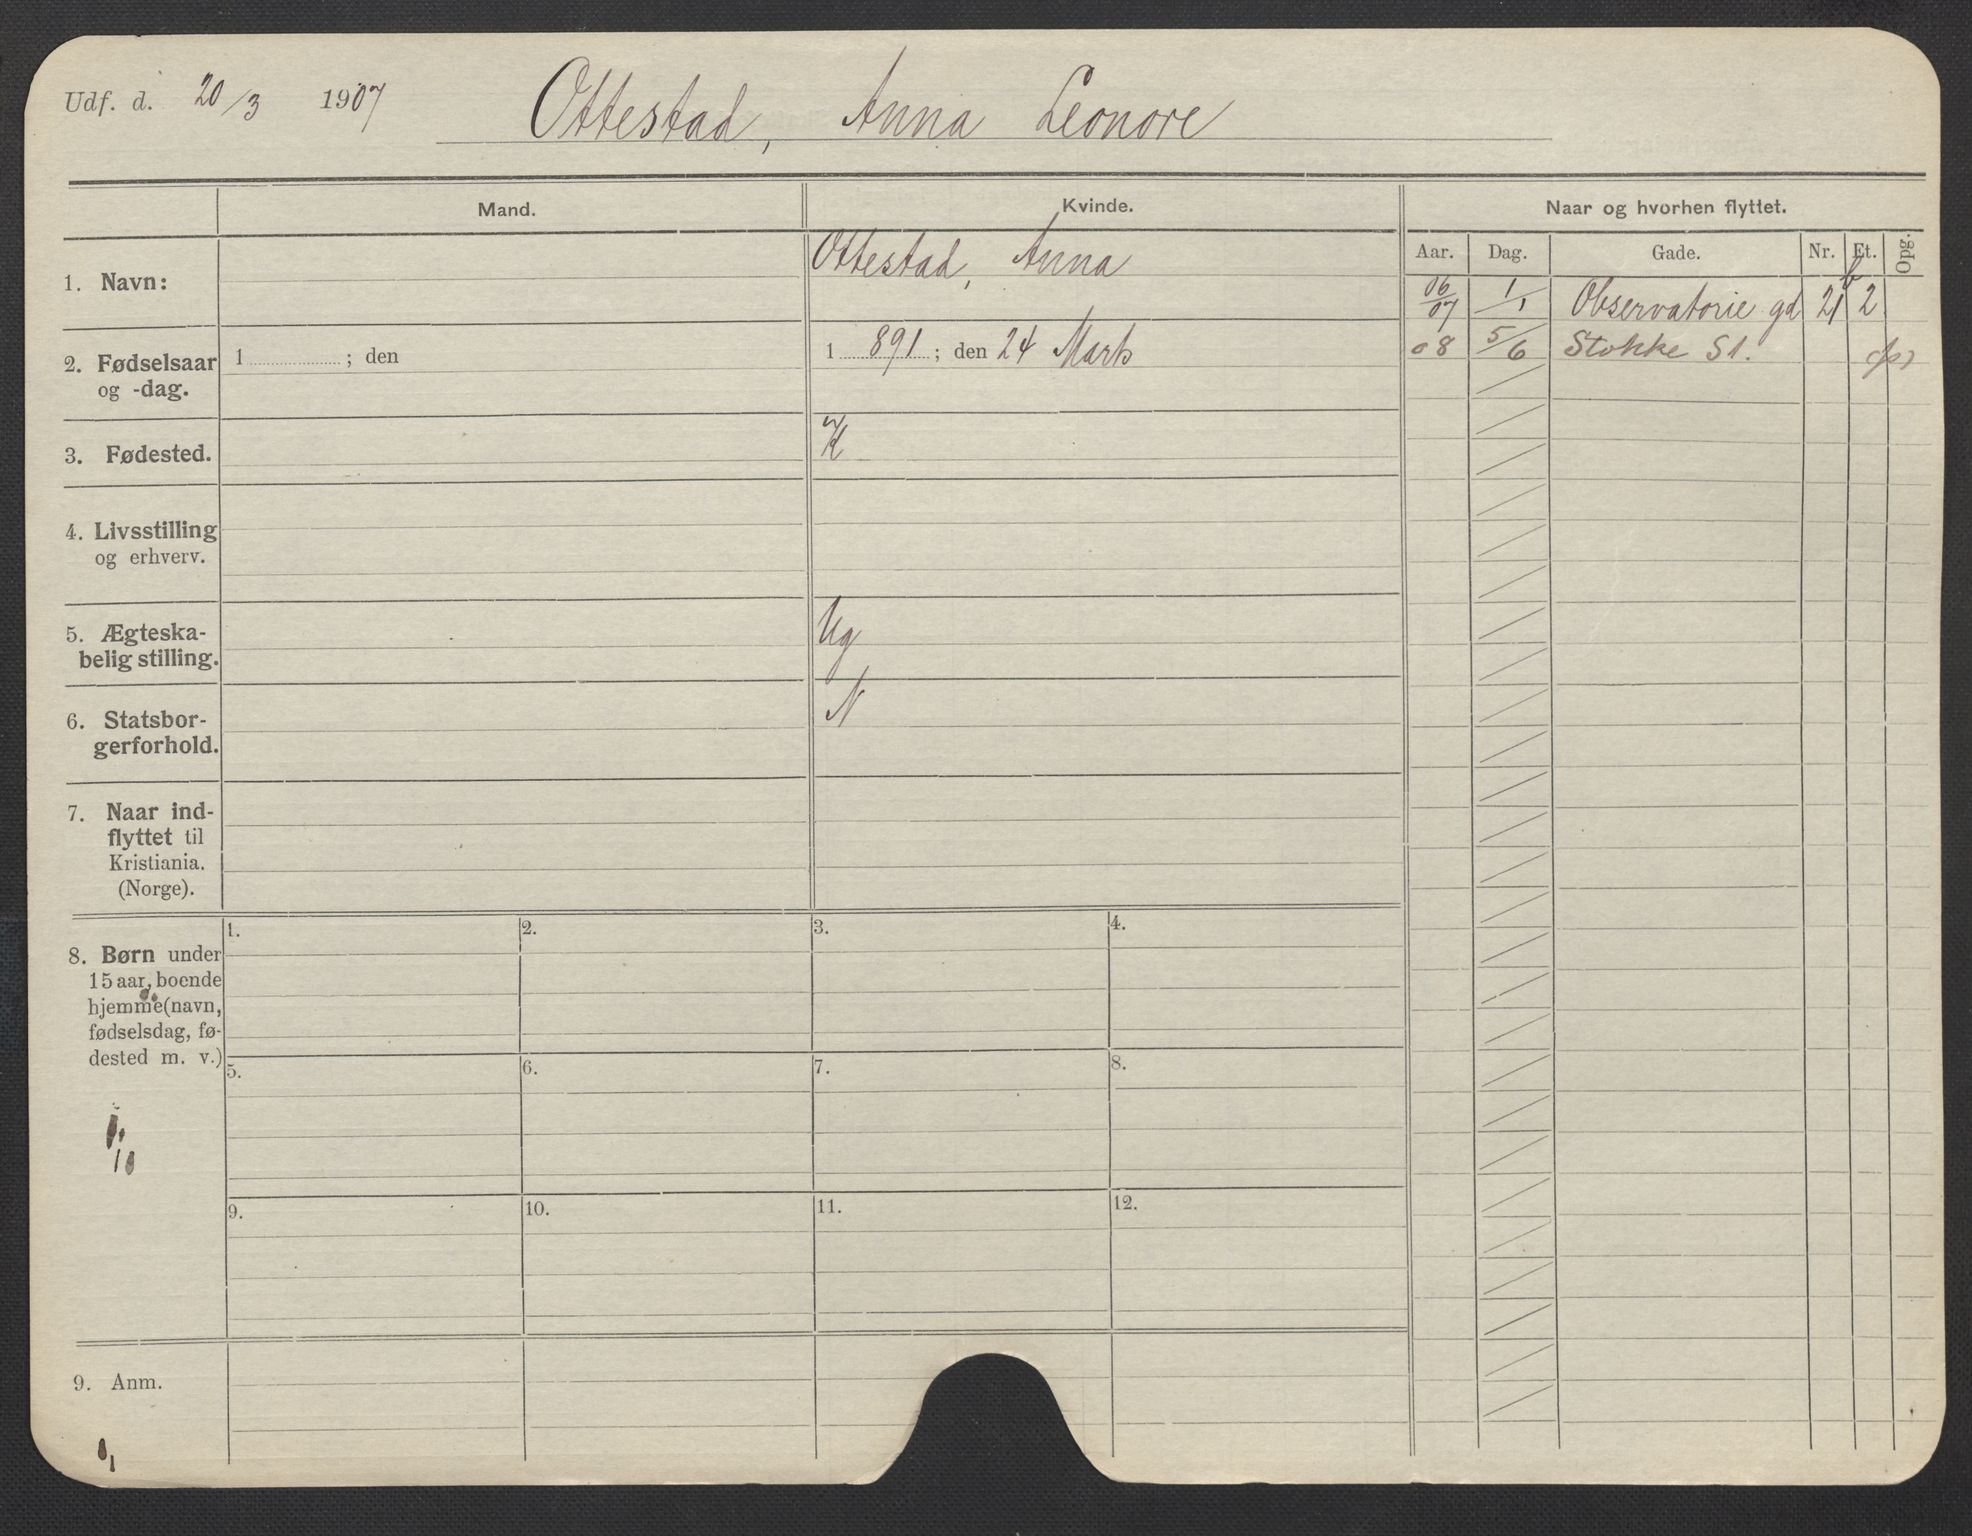 Udf. d. 20/3 1907 Ottestad, Anna Leonore
Mand. Kvinde. Naar og hvorhen flyttet.
Aar. Dag. Gade. Nr. Et. Opg.
1. Navn: Ottestad, Anna
06/07 1/1 Observatorie gd 21 b 2
2. Fødselsaar og -dag. 1 ; den 1891 ; den 24 Marts
08 5/6 Stokke St.
3. Fødested. K
4. Livsstilling
og erhverv.
5. Ægteska-
belig stilling. Ug
6. Statsbor-
gerforhold. N
7. Naar ind-
flyttet til
Kristiania.
(Norge).
8. Børn under
15 aar, boende
hjemme (navn,
fødselsdag, fø-
dested m. v.)
1. 2. 3. 4.
5. 6. 7. 8.
9. 10. 11. 12.
9. Anm.